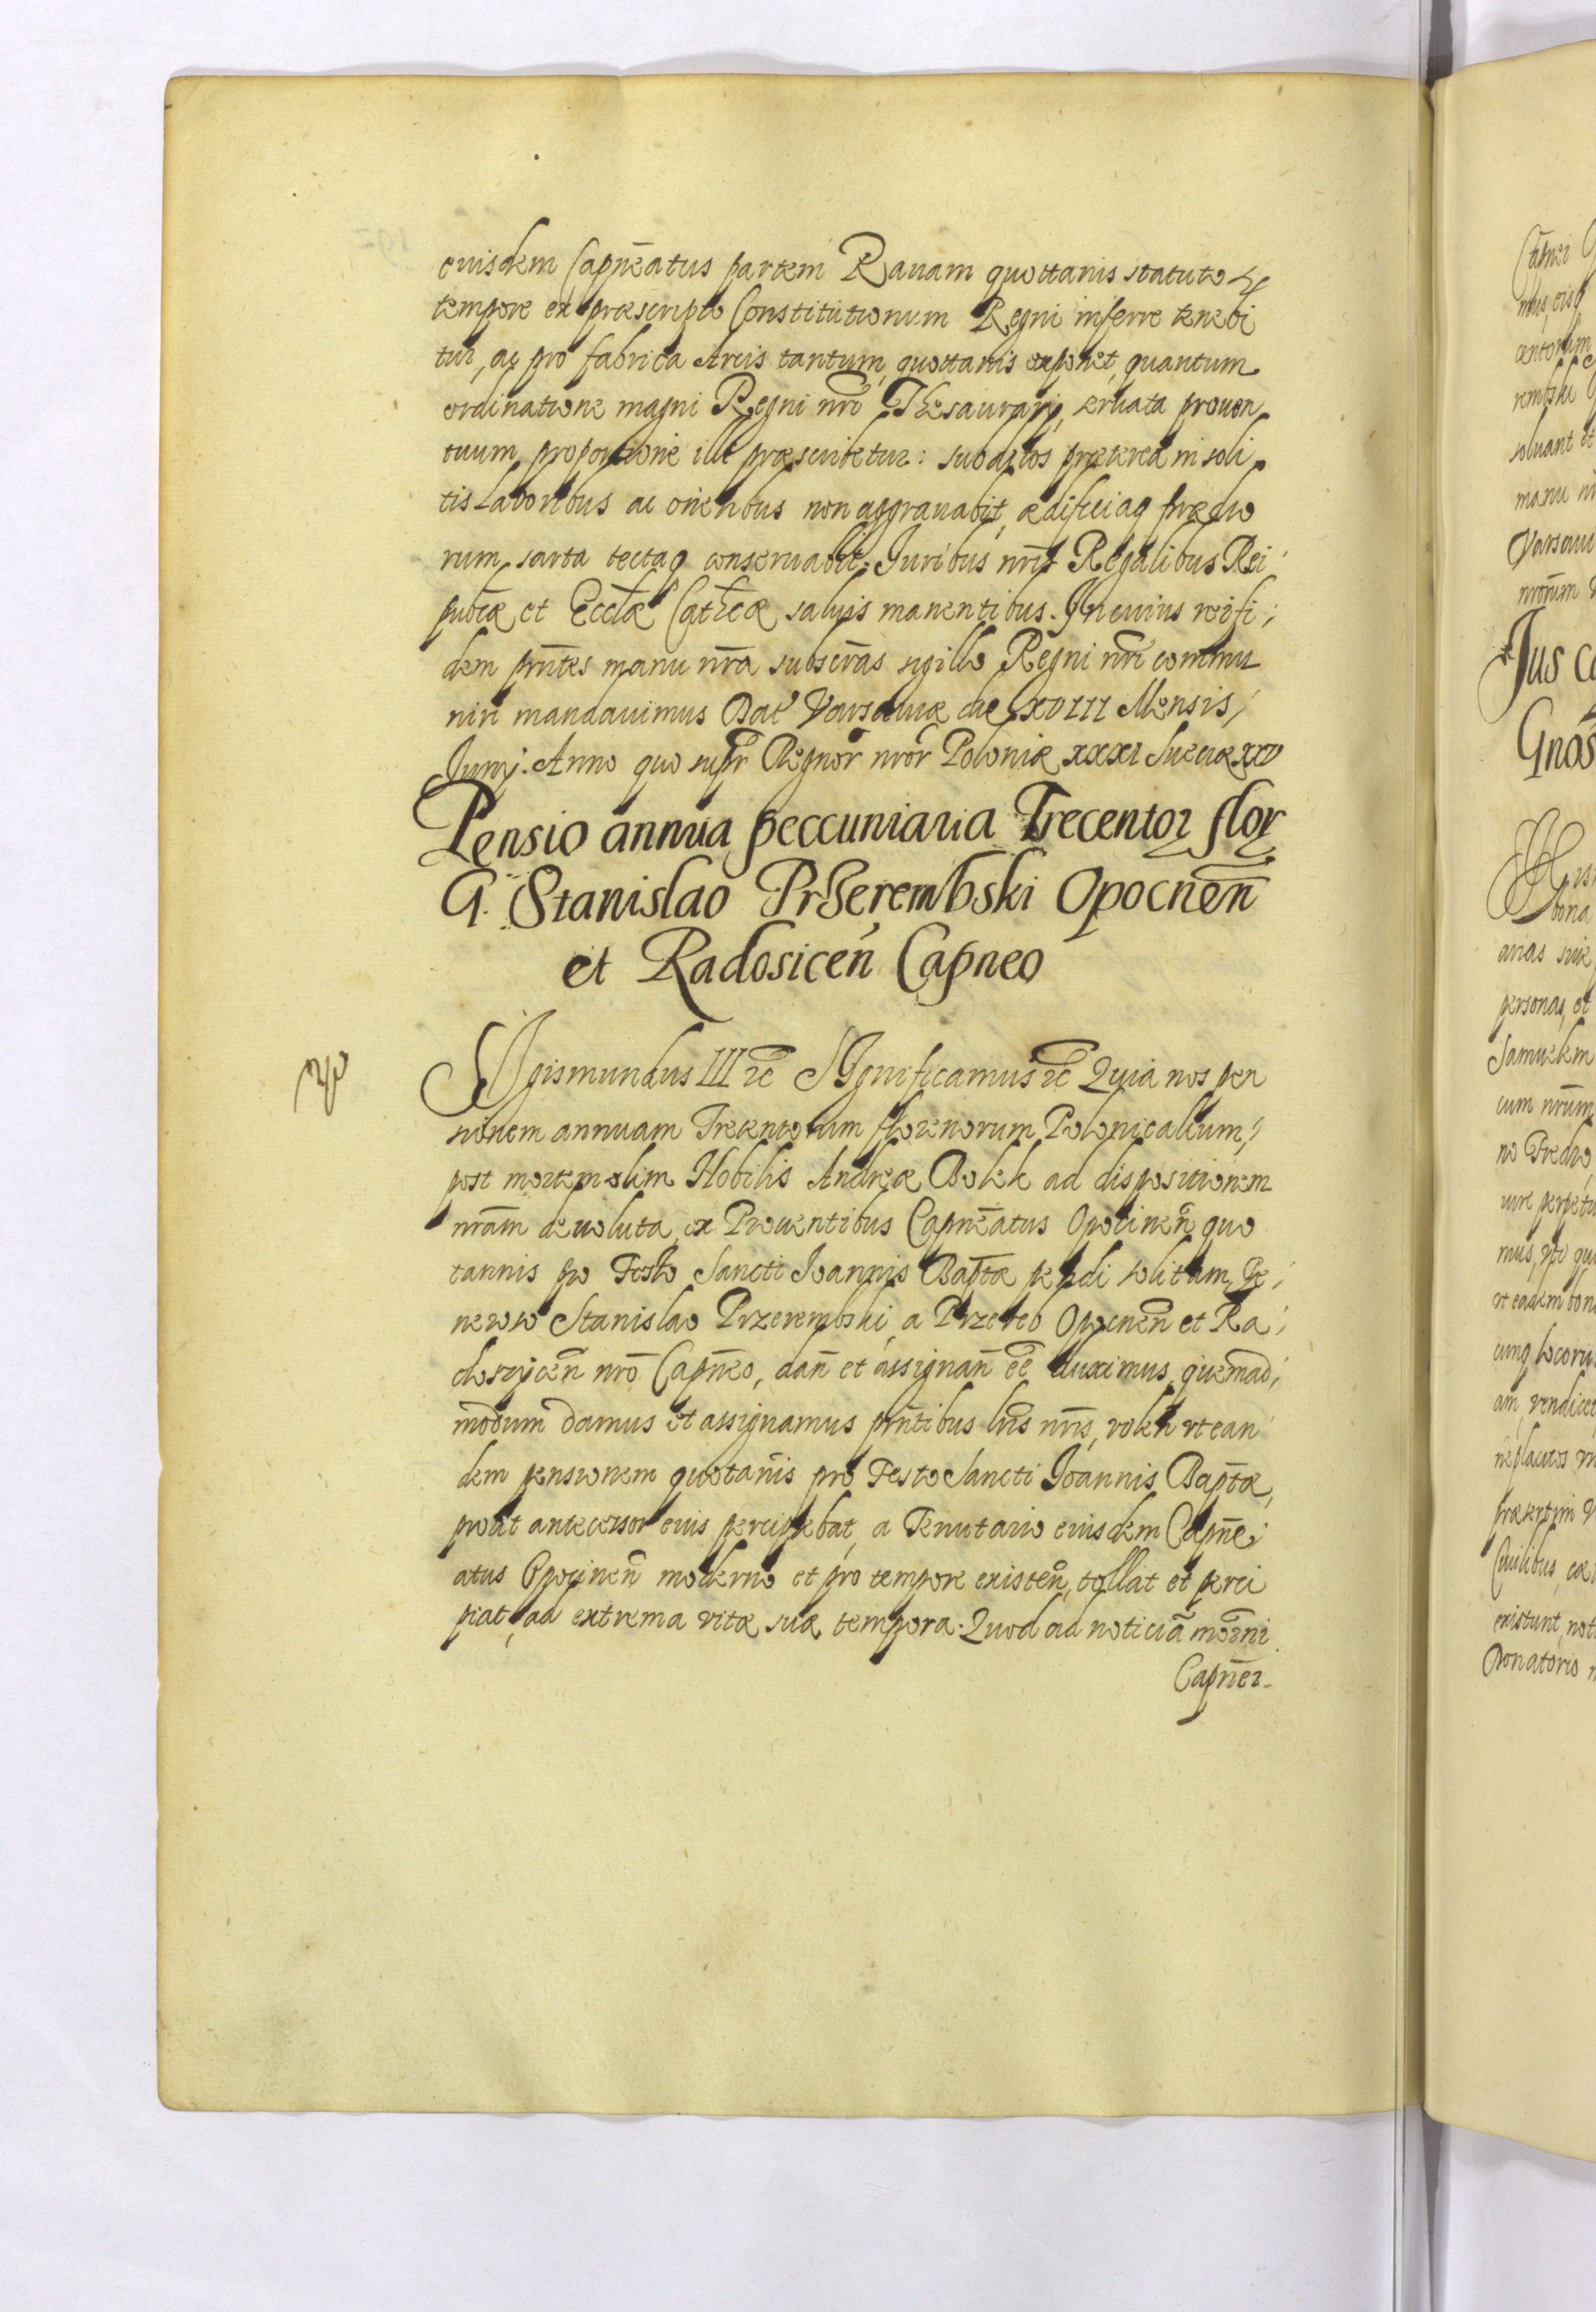 euisdem Capn̄eatus partem Rauam quottanis statuto
tempore ex præscripto Constitutionum Regni inferre tenebi
tur, ac pro fabrica Arcis tantum, quottanis exponet, quantum
ordinatione magni Regni nr̄i Thesaurarij, seruata prouen
tuum proportione illi præscribetur: subditos præterea insoli
tis laboribus ac oneribus non aggrauabit, ædificiaq prædio
rum sarta tectaq conseruabit. Juribus nr̄is Regalibus Rei
pub̄cæ et Eccl̄æ Cath̄cæ saluis manentibus. In cuius rei fi
dem pn̄tes manu nr̄a subscr̄as sigillo Regni nr̄i commu
niri mandauimus Dat Varsauiæ die XVIII Mensis
Junij. Anno quo supr Regnor nror Poloniæ XXXI Sueciæ XXV
Pensio annua peccuniaria Trecentor flor
G. Stanislao Przerembski Opocnen̄
et Radosicen̄ Capneo
SIgismundus III ec̄ SIgnificamus ec̄ Quia nos pen
sionem annuam Trecentorum florenorum Polonicalium,
post mortem olim Nobilis Andreæ Bolek ad dispositionem
nr̄am deuoluta, ex Prouentibus Capn̄eatus Opocinen̄ quo
tannis pro Festo Sancti Joannis Bapt̄æ pendi solitam, Ge
neroso Stanislao Przerembski, a Przereb Opocnen̄ et Ra
doszycen̄ nr̄o Capn̄eo, dan̄ et assignan̄ ee̅ duximus, quemad
modum damus et assignamus pn̄tibus lr̄is nr̄is, volen̄ vt ean
dem pensionem quotan̄is pro Festo Sancti Joannis Bapt̄æ,
prout antecessor eius percipiebat, a Tenutario euisdem Capn̄e
atus Opocinen̄ moderno et pro tempore existen̄, tollat et perci
piat, ad extrema vitæ suæ tempora. Quod ad noticiā moderni
Capn̄ei